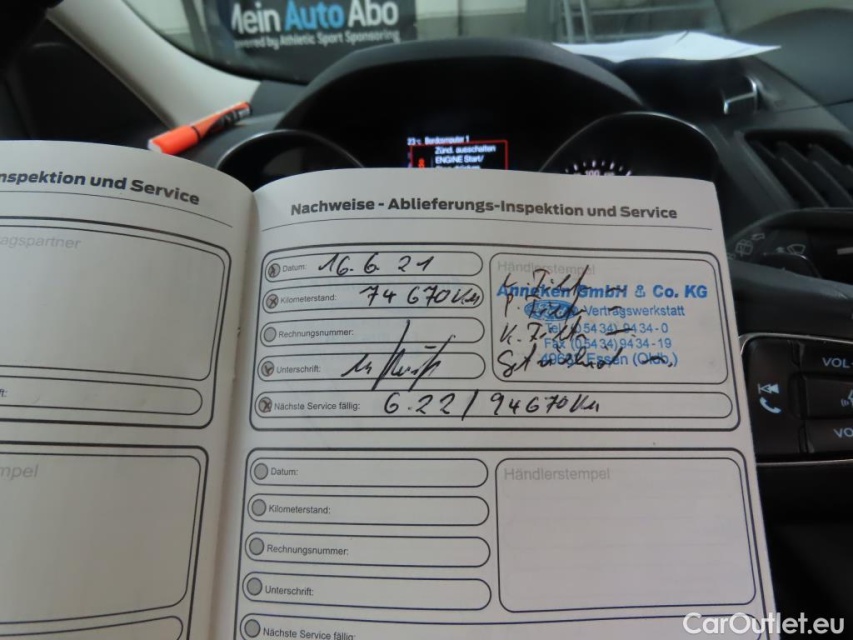 Mein Auto Abo
powered by Athletic Sport Sponsoring
23°C Bordcomputer 1
Zünd. ausschalten
ENGINE Start/
100
nspektion und Service
ragspartner
Nachweise - Ablieferungs-Inspektion und Service
Datum: 16.6.21
Kilometerstand: 74670 Km
Rechnungsnummer:
Unterschrift:
Nächste Service fällig: 6.22 / 94670 Km
Händlerstempel
Anneken GmbH & Co. KG
Vertragswerkstatt
Tel. (05434) 9434-0
Fax (05434) 9434-19
49632 Essen (Oldb.)
Datum:
Kilometerstand:
Rechnungsnummer:
Unterschrift:
Nächste Service fällig:
Händlerstempel
mpel
VOL
VO
CarOutlet.eu